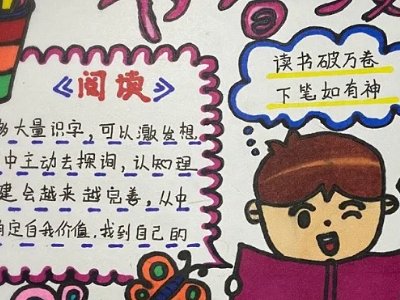 《阅读》
大量识字，可以激发想
中主动去探询，认知理
建会越来越完善，从中
自我价值.找到自己的
读书破万卷
下笔如有神